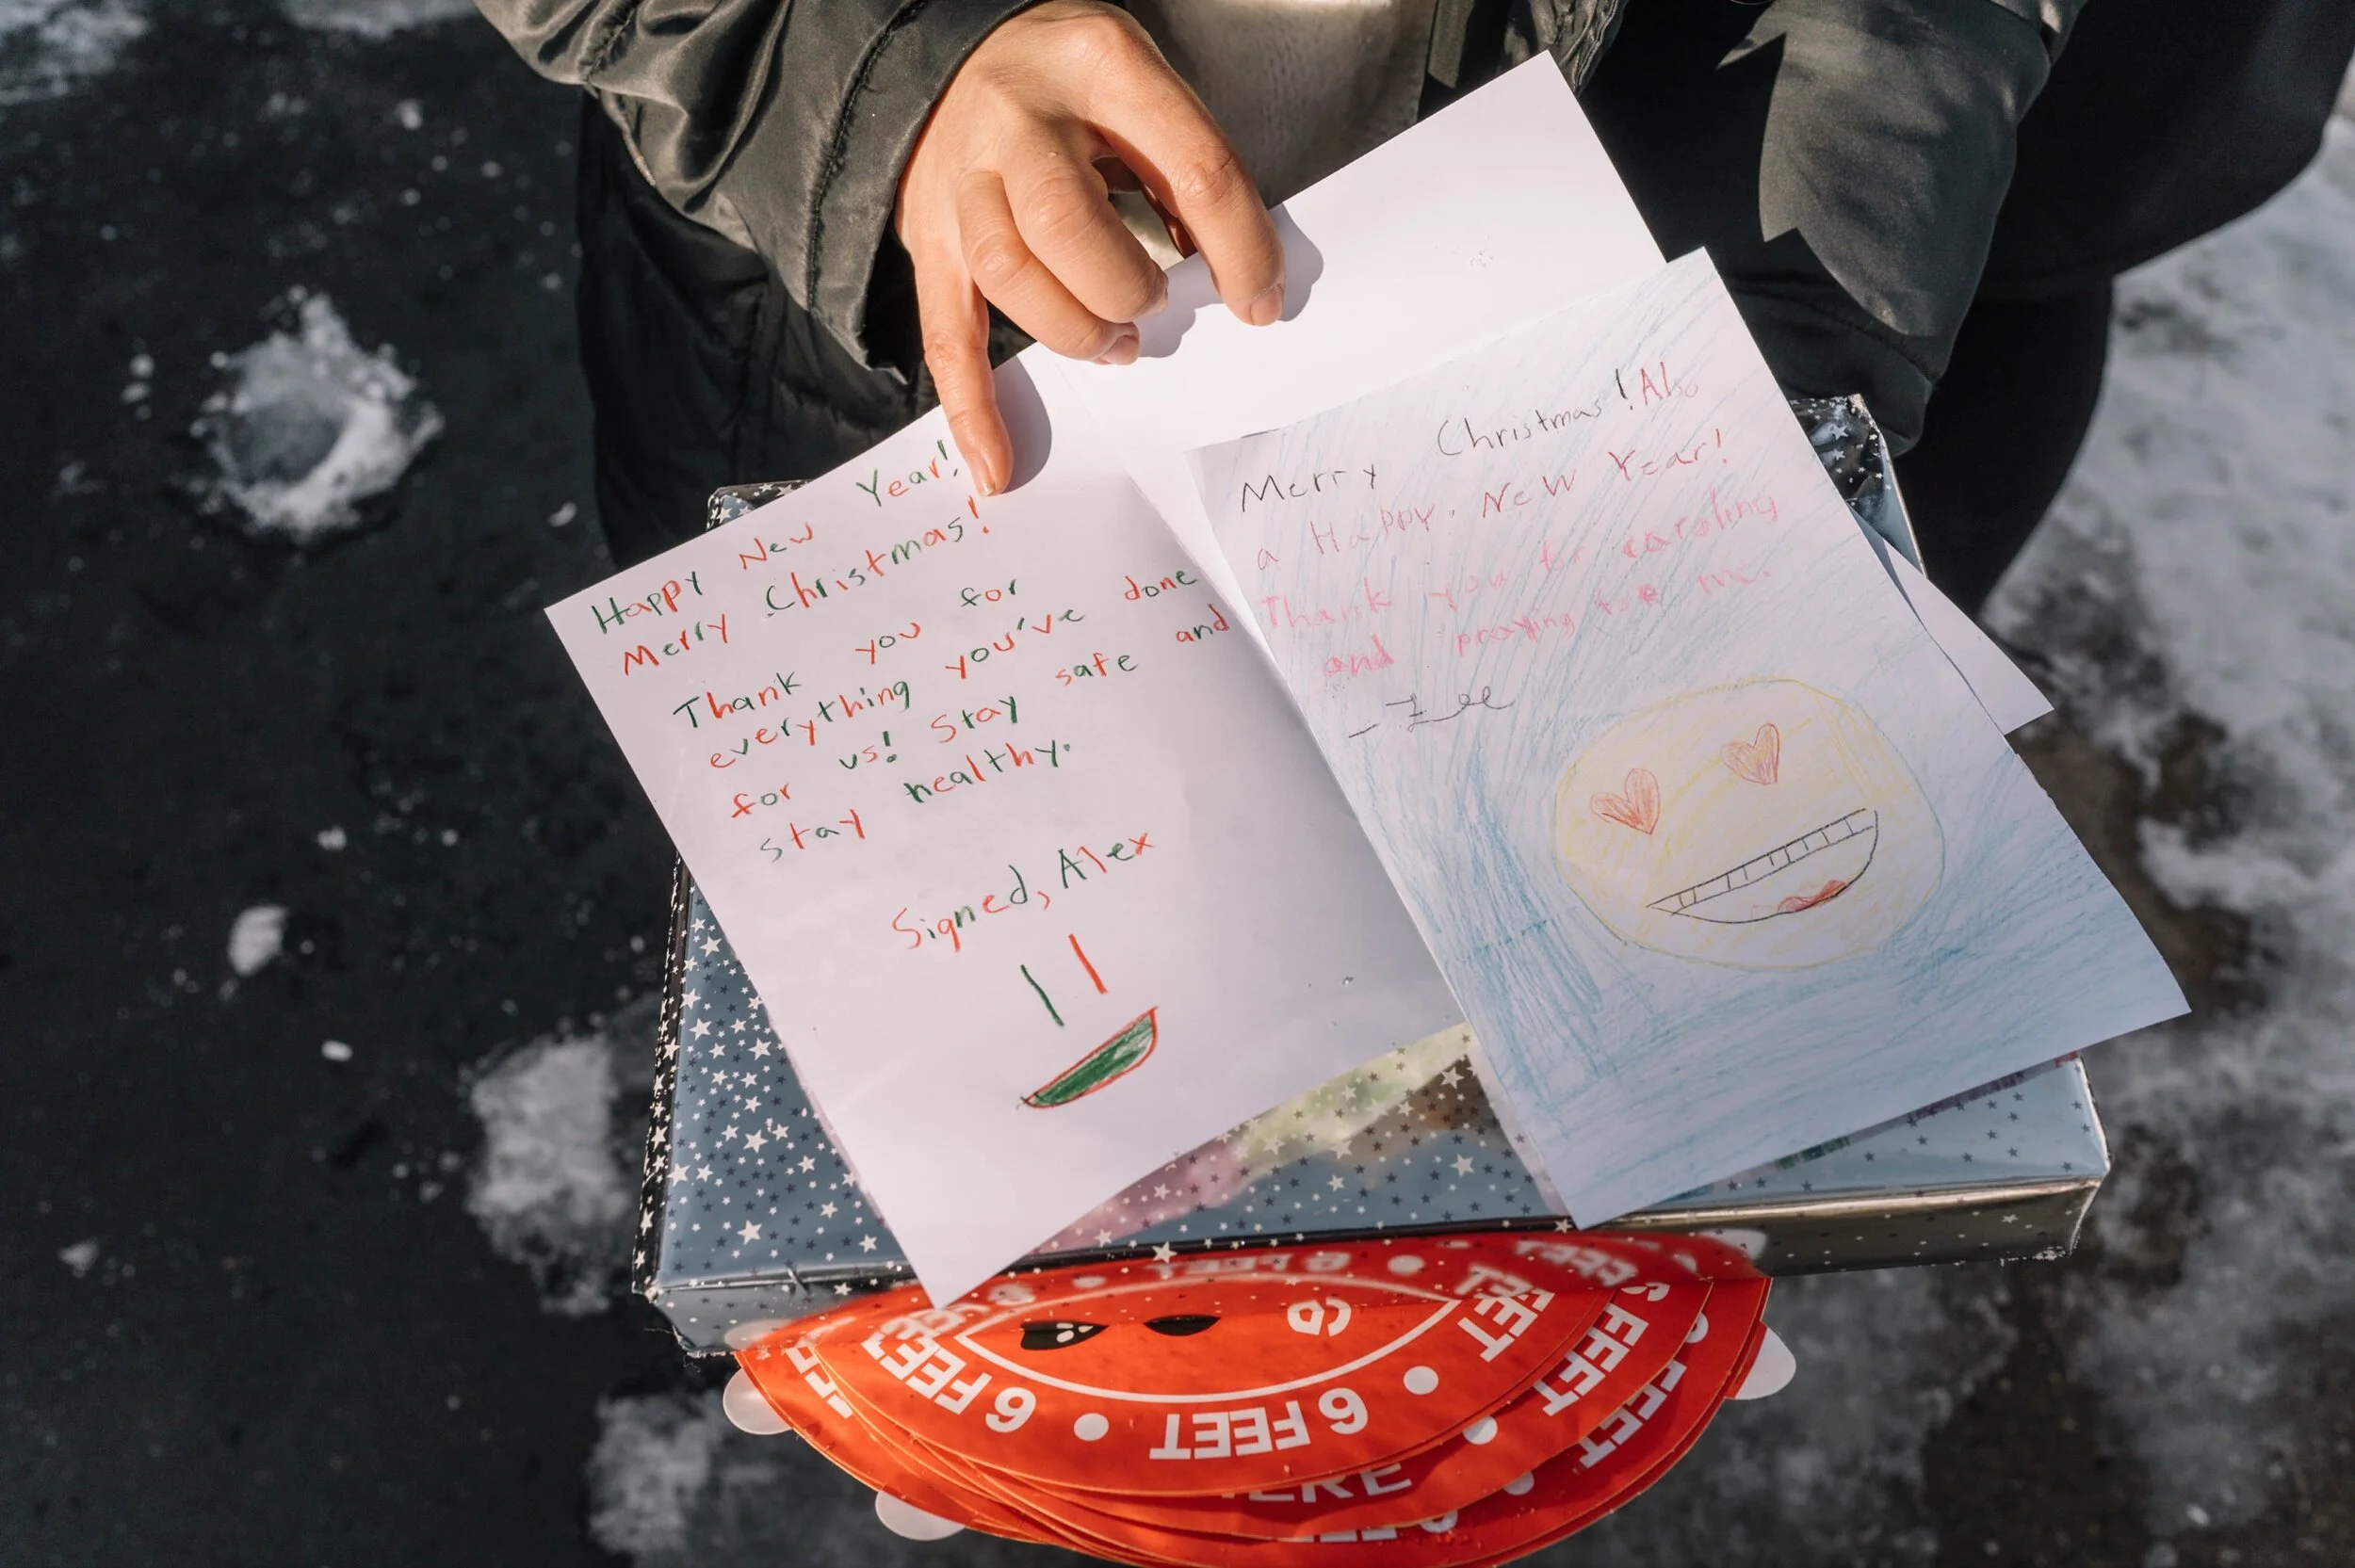 Happy New Year!
Merry Christmas!
Thank you for
everything you've done
for us! Stay safe and
stay healthy.
Signed, Alex
Merry Christmas! Also
a Happy. New Year!
Thank you for caroling
and praying for me.
6 FEET
6 FEET
6 FEET
FEET
6 FEET
FEET